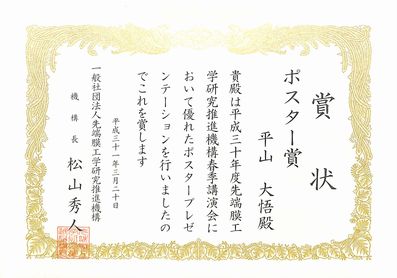 賞状
ポスター賞
平山 大悟殿
貴殿は平成三十年度先端膜工
学研究推進機構春季講演会に
おいて優れたポスタープレゼ
ンテーションを行いましたの
でこれを賞します
平成三十一年三月二十日
一般社団法人先端膜工学研究推進機構
機構長 松山秀人